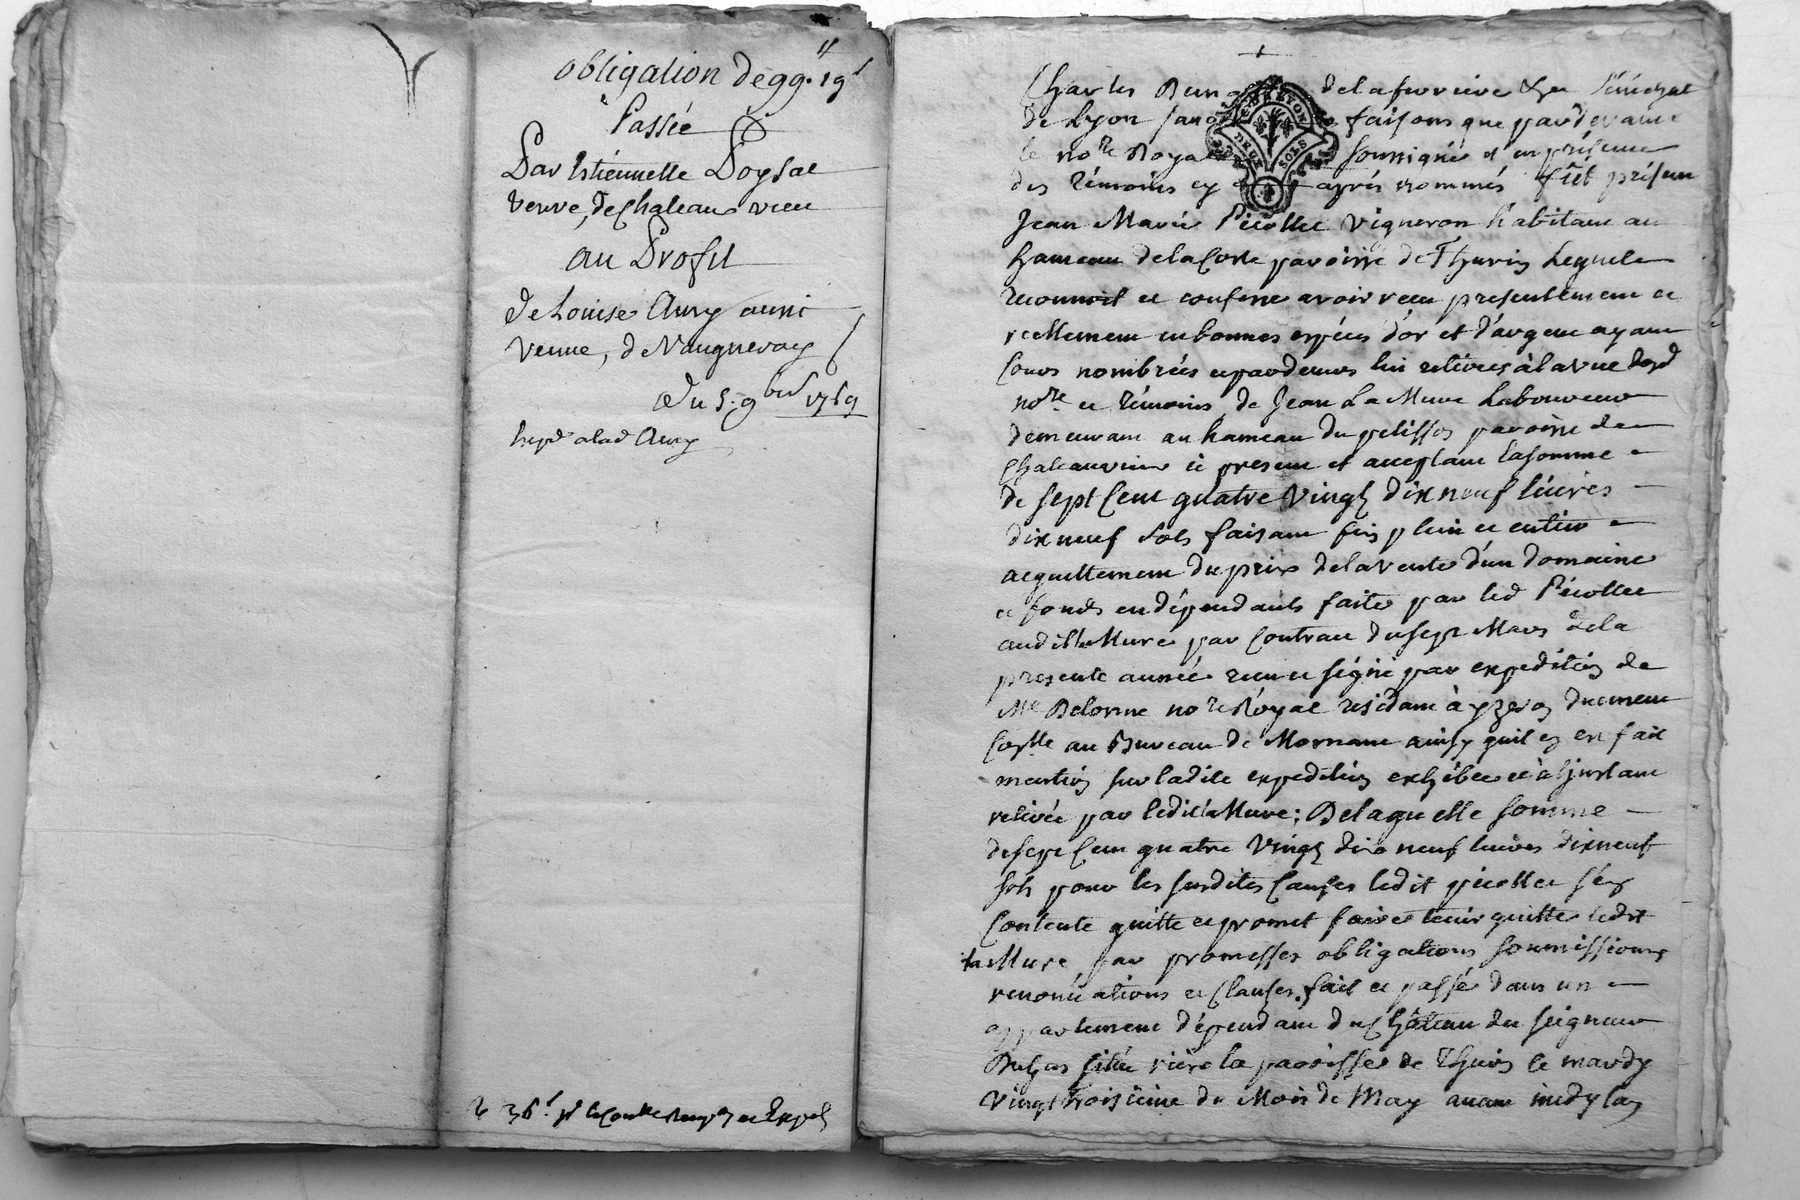 obligation de 99.ᵗᵗ 19ˢ
Passée
Par Estiennette Poysat
veuve, de Chateauvieu
au Profit
de Louise Aury aussi
veuve, de Vaugneray
Du 5. 9bre 1769
Exped a lad Aury
Charles de la ferriere Sénéchal
de Lyon faisons que pardevant
le nore Royal soussigné et en présence
des témoins cy après nommés fût présent
Jean Marie Picollet vigneron habitant au
hameau de la Coste paroisse de Thurin lequel
reconnoit et confesse avoir receu presentement et
reellement en bonnes espéces d'or et d'argent ayant
cours nombrées et pardevers lui retirées à la vue desd
nore et témoins, de Jean La Mure Laboureur
demeurant au hameau du pelisson paroisse de
Chateauvieux ici present et acceptant la somme
de sept Cent quatre vingt dix neuf livres
dix neuf sols faisant fin plein et entier
acquittement du prix de la vente d'un domaine
et fonds en dépendants faite par led Picollet
audit la Mure par Contrat du sept Mars de la
presente année receu et signé par expedition de
Me Delorme nore Royal residant à yzeron duement
Conlle au Bureau de Mornant ainsy quil en est fait
mention sur ladite expedition exhibée et à l'instant
retirée par ledit la Mure; De laquelle somme
de sept Cent quatre vingt dix neuf livres dix neuf
sols pour les susdites Causes ledit picollet s'en
Contente quitte et promet faire tenir quitte ledit
la Mure par promesses obligations soumissions
renonciations et Clauses. fait et passé dans un
appartement dépendant du Château du seigneur
situé riere la paroisse de Thurin le mardy
vingt troisiéme du Mois de May avant midy l'an